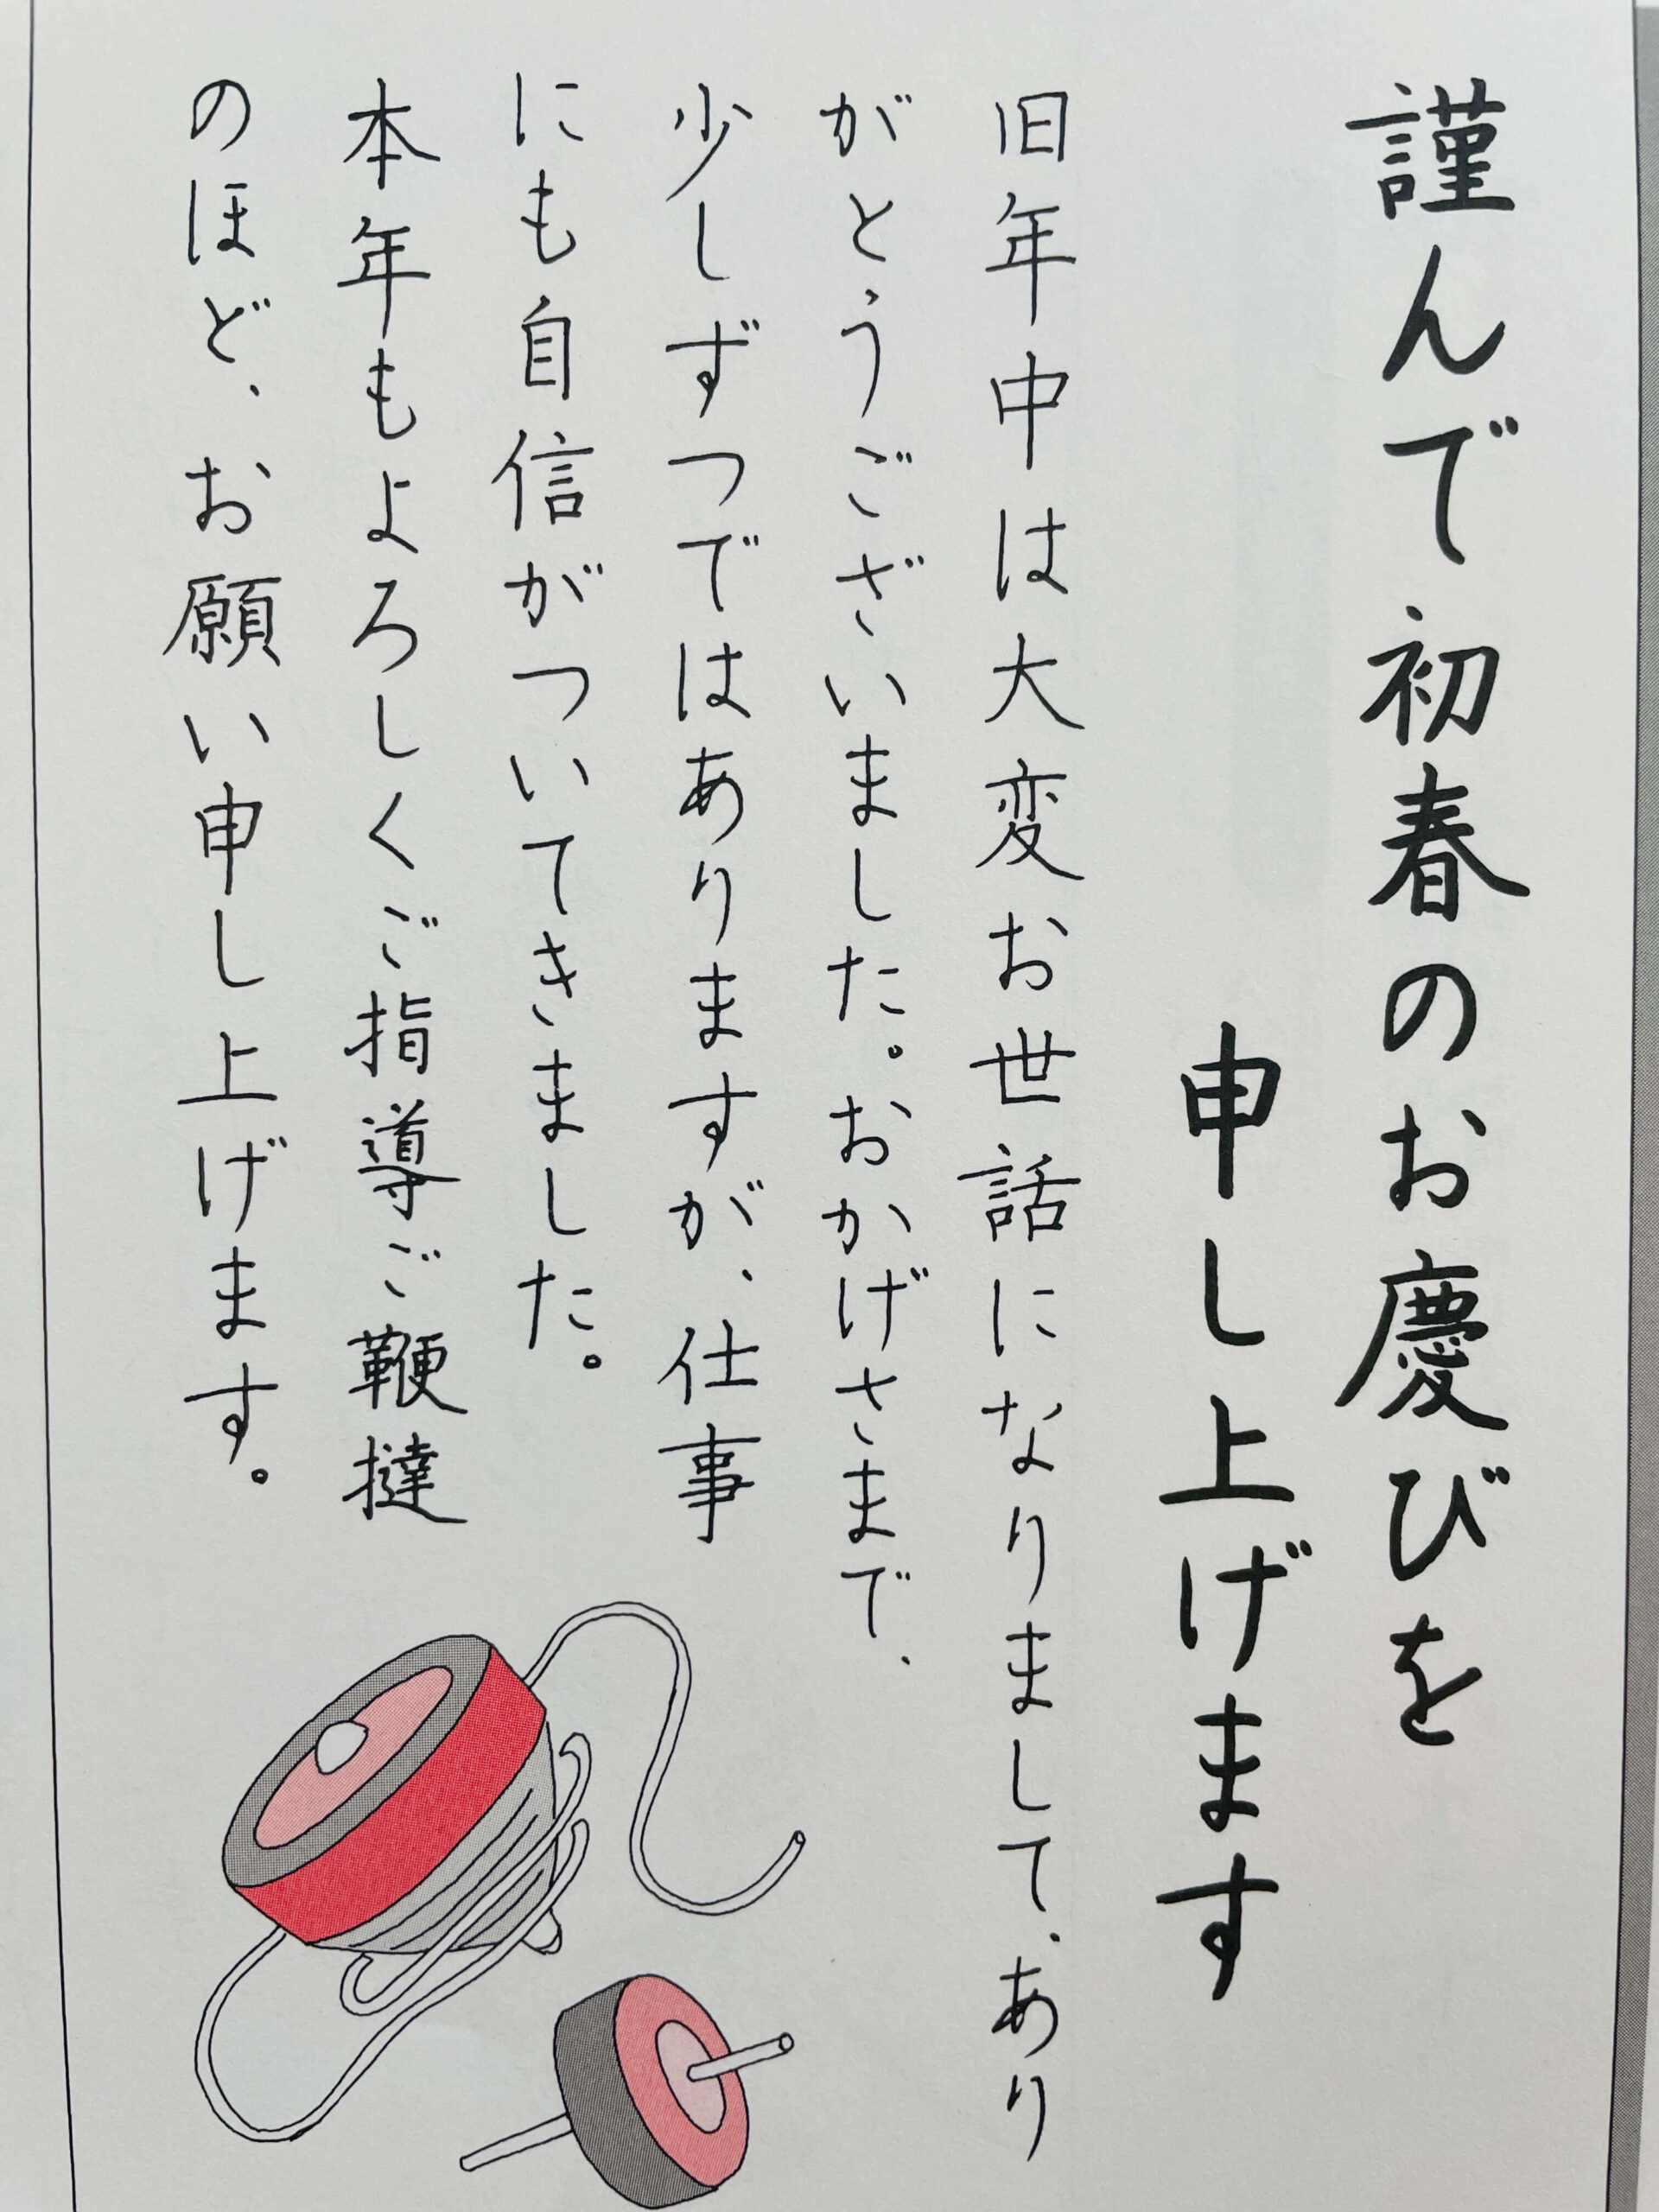 謹んで初春のお慶びを
申し上げます
旧年中は大変お世話になりまして、あり
がとうございました。おかげさまで、
少しずつではありますが、仕事
にも自信がついてきました。
本年もよろしくご指導ご鞭撻
のほど、お願い申し上げます。